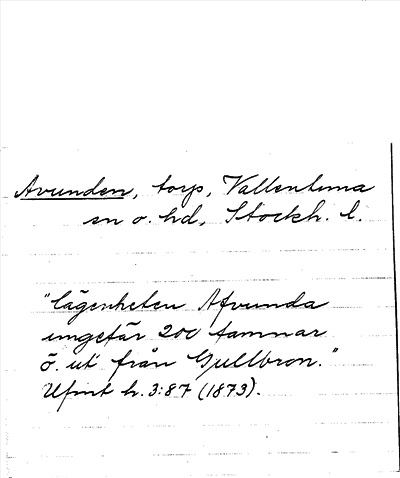 Avunden, torp, Vallentuna
sn o. hd, Stockh. l.
"lägenheten Afvunda
ungefär 200 famnar
ö. ut från Gullbron."
Ufmt h. 3:87 (1873).